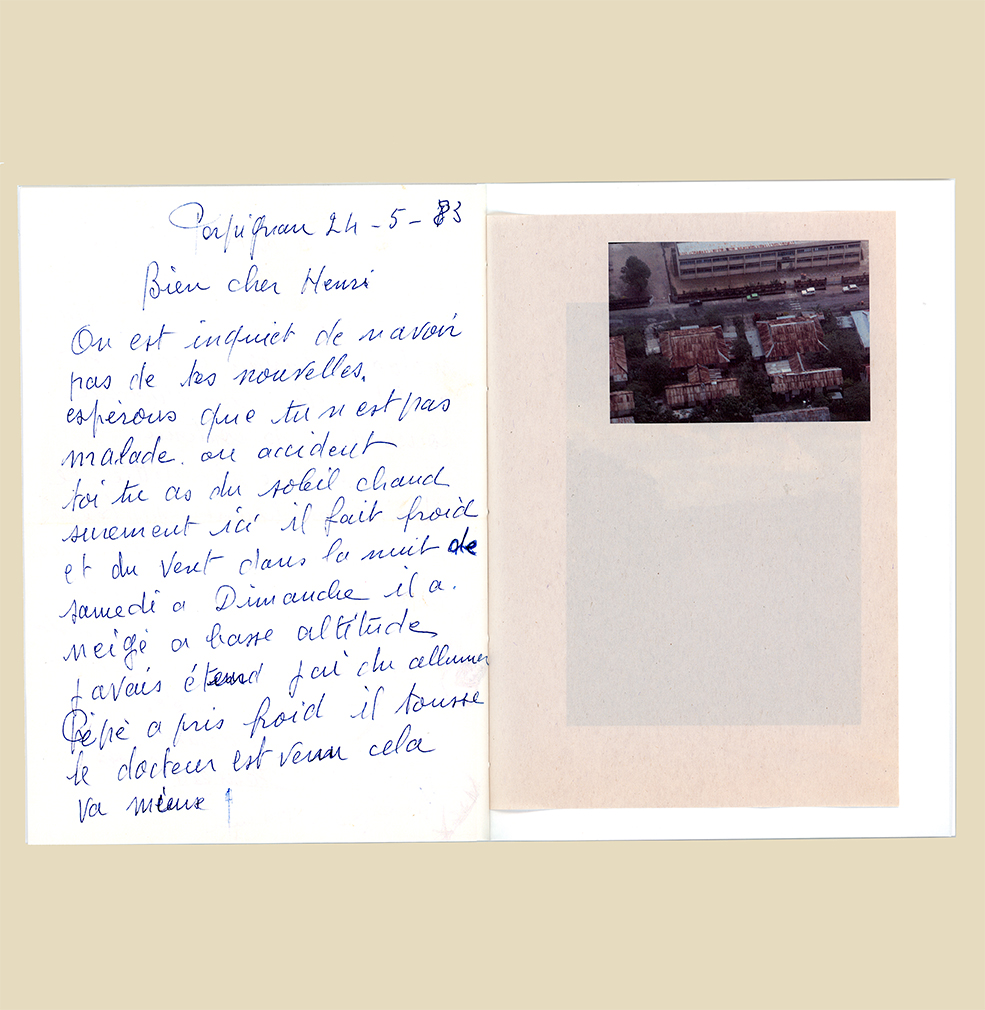 Perpignan 24-5-83
Bien cher Henri
On est inquiet de n avoir
pas de tes nouvelles.
espèrons que tu n est pas
malade. ou accident
toi tu as du soleil chaud
surement ici il fait froid
et du vent dans la nuit de
samedi a Dimanche il a.
neigé a basse altitude
javais étend jai du allumer
Pépé a pris froid il tousse
le docteur est venu cela
va mieux